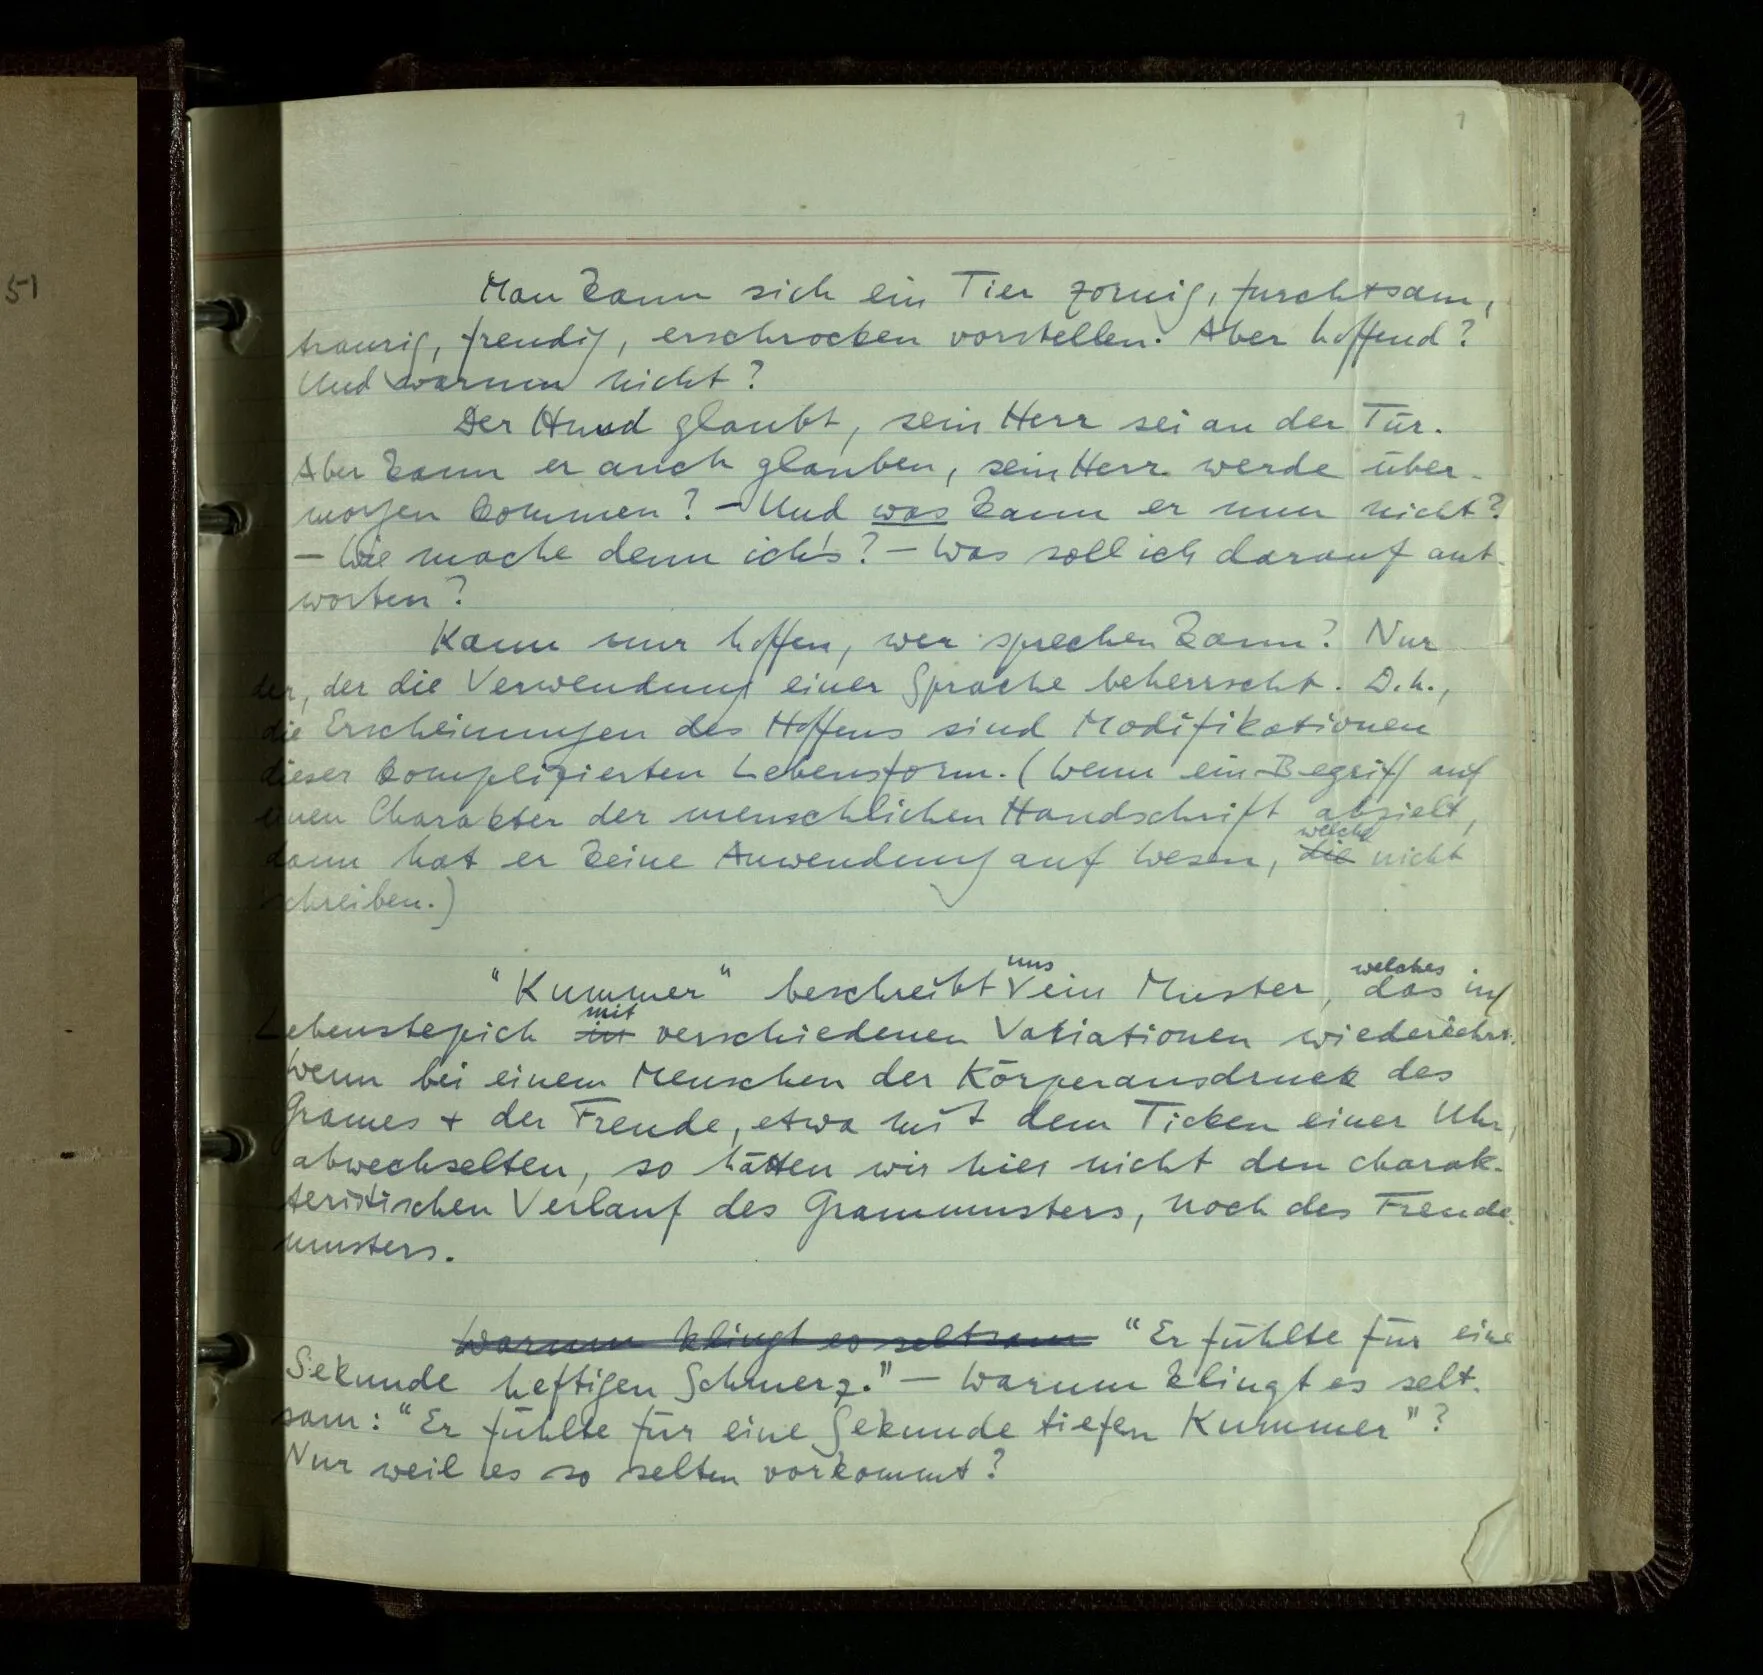 1
51
Man kann sich ein Tier zornig, furchtsam,
traurig, freudig, erschrocken vorstellen. Aber hoffend?
Und warum nicht?
Der Hund glaubt, sein Herr sei an der Tür.
Aber kann er auch glauben, sein Herr werde über-
morgen kommen? – Und was kann er nun nicht?
– Wie mache denn ich's? – Was soll ich darauf ant-
worten?
Kann nur hoffen, wer sprechen kann? Nur
der, der die Verwendung einer Sprache beherrscht. D.h.,
die Erscheinungen des Hoffens sind Modifikationen
dieser komplizierten Lebensform. (Wenn ein Begriff auf
einen Charakter der menschlichen Handschrift abzielt,
welche
dann hat er keine Anwendung auf Wesen, die nicht
schreiben.)
uns welches
"Kummer" beschreibt ein Muster, das im
mit
Lebensteppich in verschiedenen Variationen wiederkehrt.
Wenn bei einem Menschen der Körperausdruck des
Grames + der Freude, etwa mit dem Ticken einer Uhr,
abwechselten, so hätten wir hier nicht den charak-
teristischen Verlauf des Grammusters, noch des Freude-
musters.
Warum klingt es seltsam "Er fühlte für eine
Sekunde heftigen Schmerz." – Warum klingt es selt-
sam: "Er fühlte für eine Sekunde tiefen Kummer"?
Nur weil es so selten vorkommt?